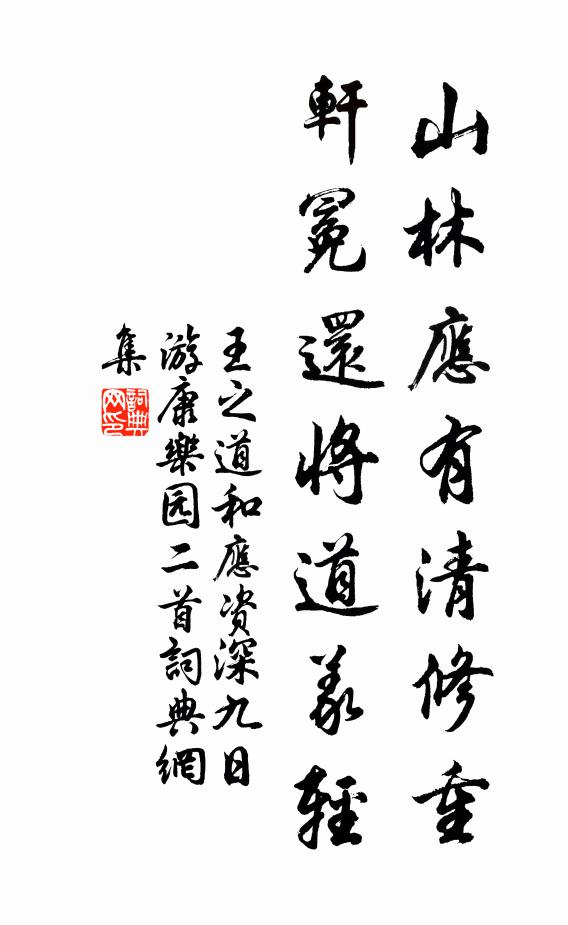 山林應有清修重
軒冕還將道義輕
王之道和應资深九日
游康樂园二首詞典網
集
詞典
网印